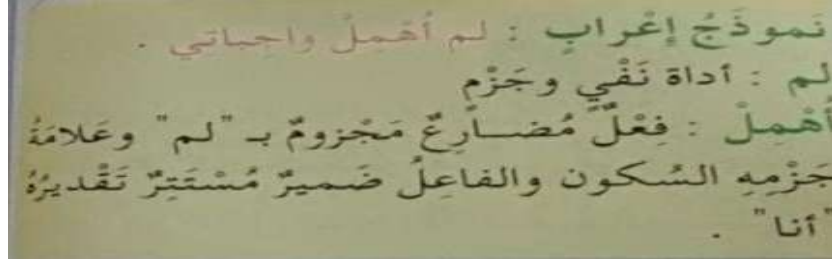 نَموذَجُ إِعْرابٍ : لم أُهْمِلْ واجباتي .
لم : أداة نَفْيٍ وجَزْمٍ
أُهْمِلْ : فِعْلٌ مُضــارِعٌ مَجْزومٌ بـ "لم" وعَلامَةُ
جَزْمِهِ السُكون والفاعِلُ ضَميرٌ مُسْتَتِرٌ تَقْديرُهُ
"أنا" .